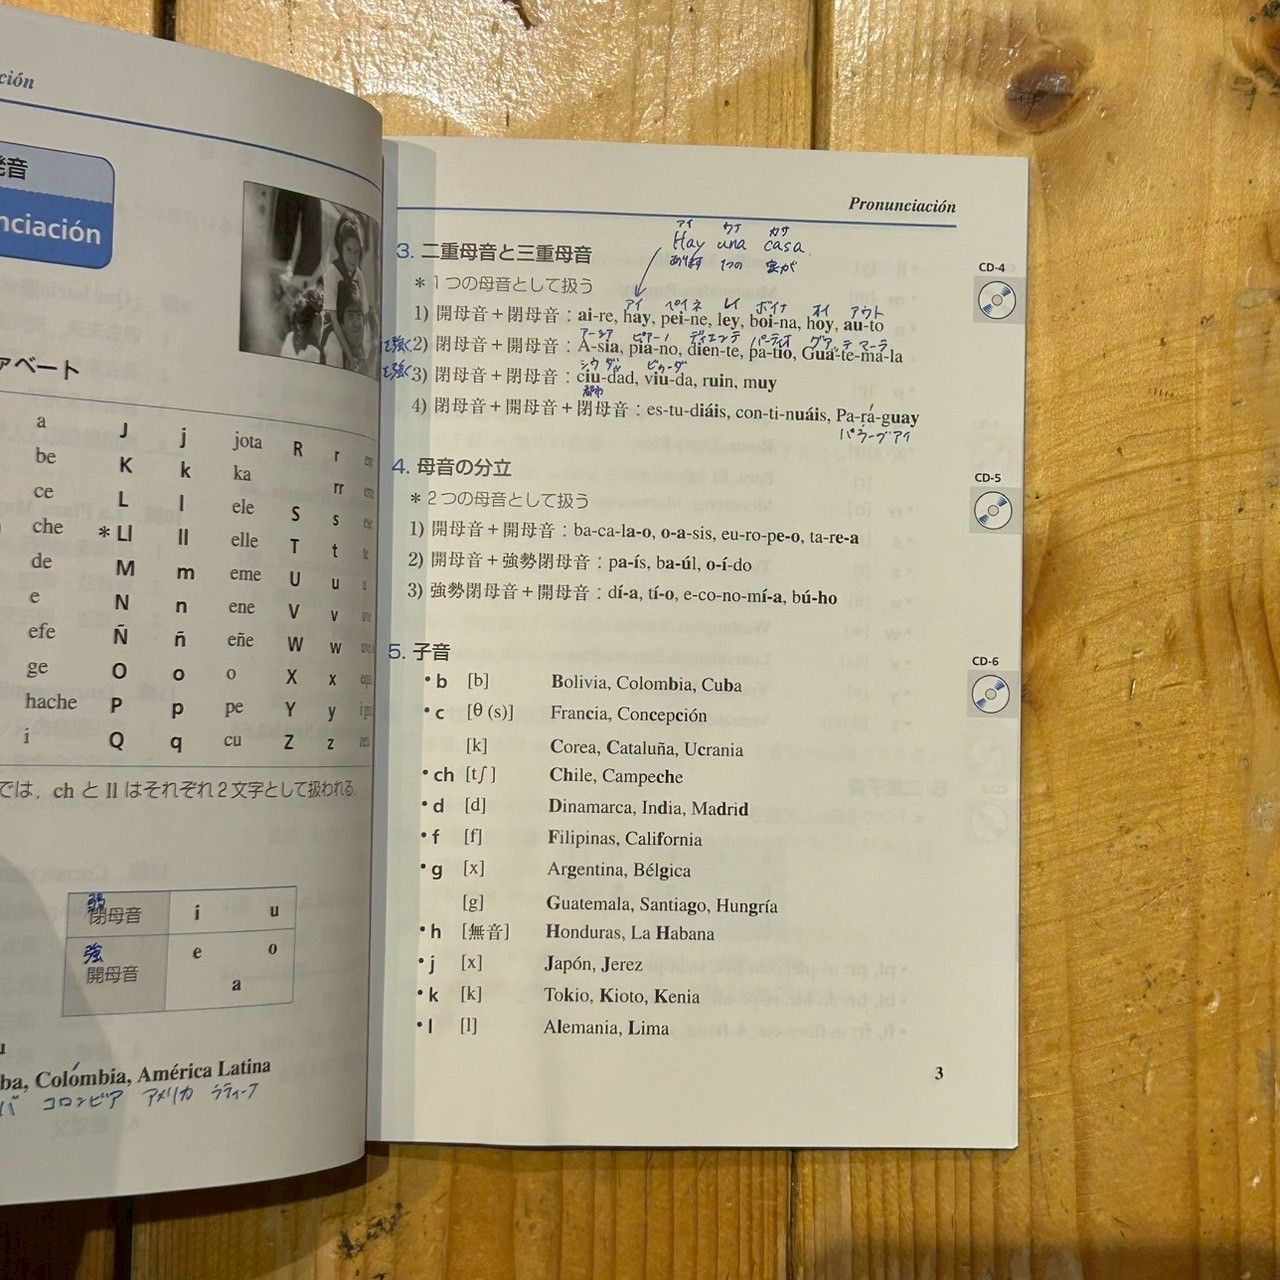 ción
発音
nciación
ァベート
a J j jota R r
be K k ka rr
ce L l ele S s
che *Ll ll elle T t
de M m eme U u
e N n ene V v
efe Ñ ñ eñe W w
ge O o o X x
hache P p pe Y y
i Q q cu Z z
では，ch と ll はそれぞれ2文字として扱われる．
弱
閉母音 i u
強
開母音 e o
a
u
ba, Colombia, América Latina
バ コロンビア アメリカ ラティーナ
Pronunciación
アイ ウナ カサ
Hay una casa.
あります 1つの 家が
3. 二重母音と三重母音
＊1つの母音として扱う
アイ ペイネ レイ ボイナ オイ アウト
1) 開母音＋閉母音：ai-re, hay, pei-ne, ley, boi-na, hoy, au-to
アーシア ピアーノ ディエンテ パーティオ グアーテマーラ
2) 閉母音＋開母音：A-sia, pia-no, dien-te, pa-tio, Gua-te-ma-la
シウダッ ビウーダ
3) 閉母音＋閉母音：ciu-dad, viu-da, ruin, muy
都市
4) 閉母音＋開母音＋閉母音：es-tu-diáis, con-ti-nuáis, Pa-ra-guay
パラーグアイ
4. 母音の分立
＊2つの母音として扱う
1) 開母音＋開母音：ba-ca-la-o, o-a-sis, eu-ro-pe-o, ta-re-a
2) 開母音＋強勢閉母音：pa-ís, ba-úl, o-í-do
3) 強勢閉母音＋開母音：dí-a, tí-o, e-co-no-mí-a, bú-ho
5. 子音
・b [b] Bolivia, Colombia, Cuba
・c [θ (s)] Francia, Concepción
[k] Corea, Cataluña, Ucrania
・ch [tʃ] Chile, Campeche
・d [d] Dinamarca, India, Madrid
・f [f] Filipinas, California
・g [x] Argentina, Bélgica
[g] Guatemala, Santiago, Hungría
・h [無音] Honduras, La Habana
・j [x] Japón, Jerez
・k [k] Tokio, Kioto, Kenia
・l [l] Alemania, Lima
CD-4
CD-5
CD-6
3